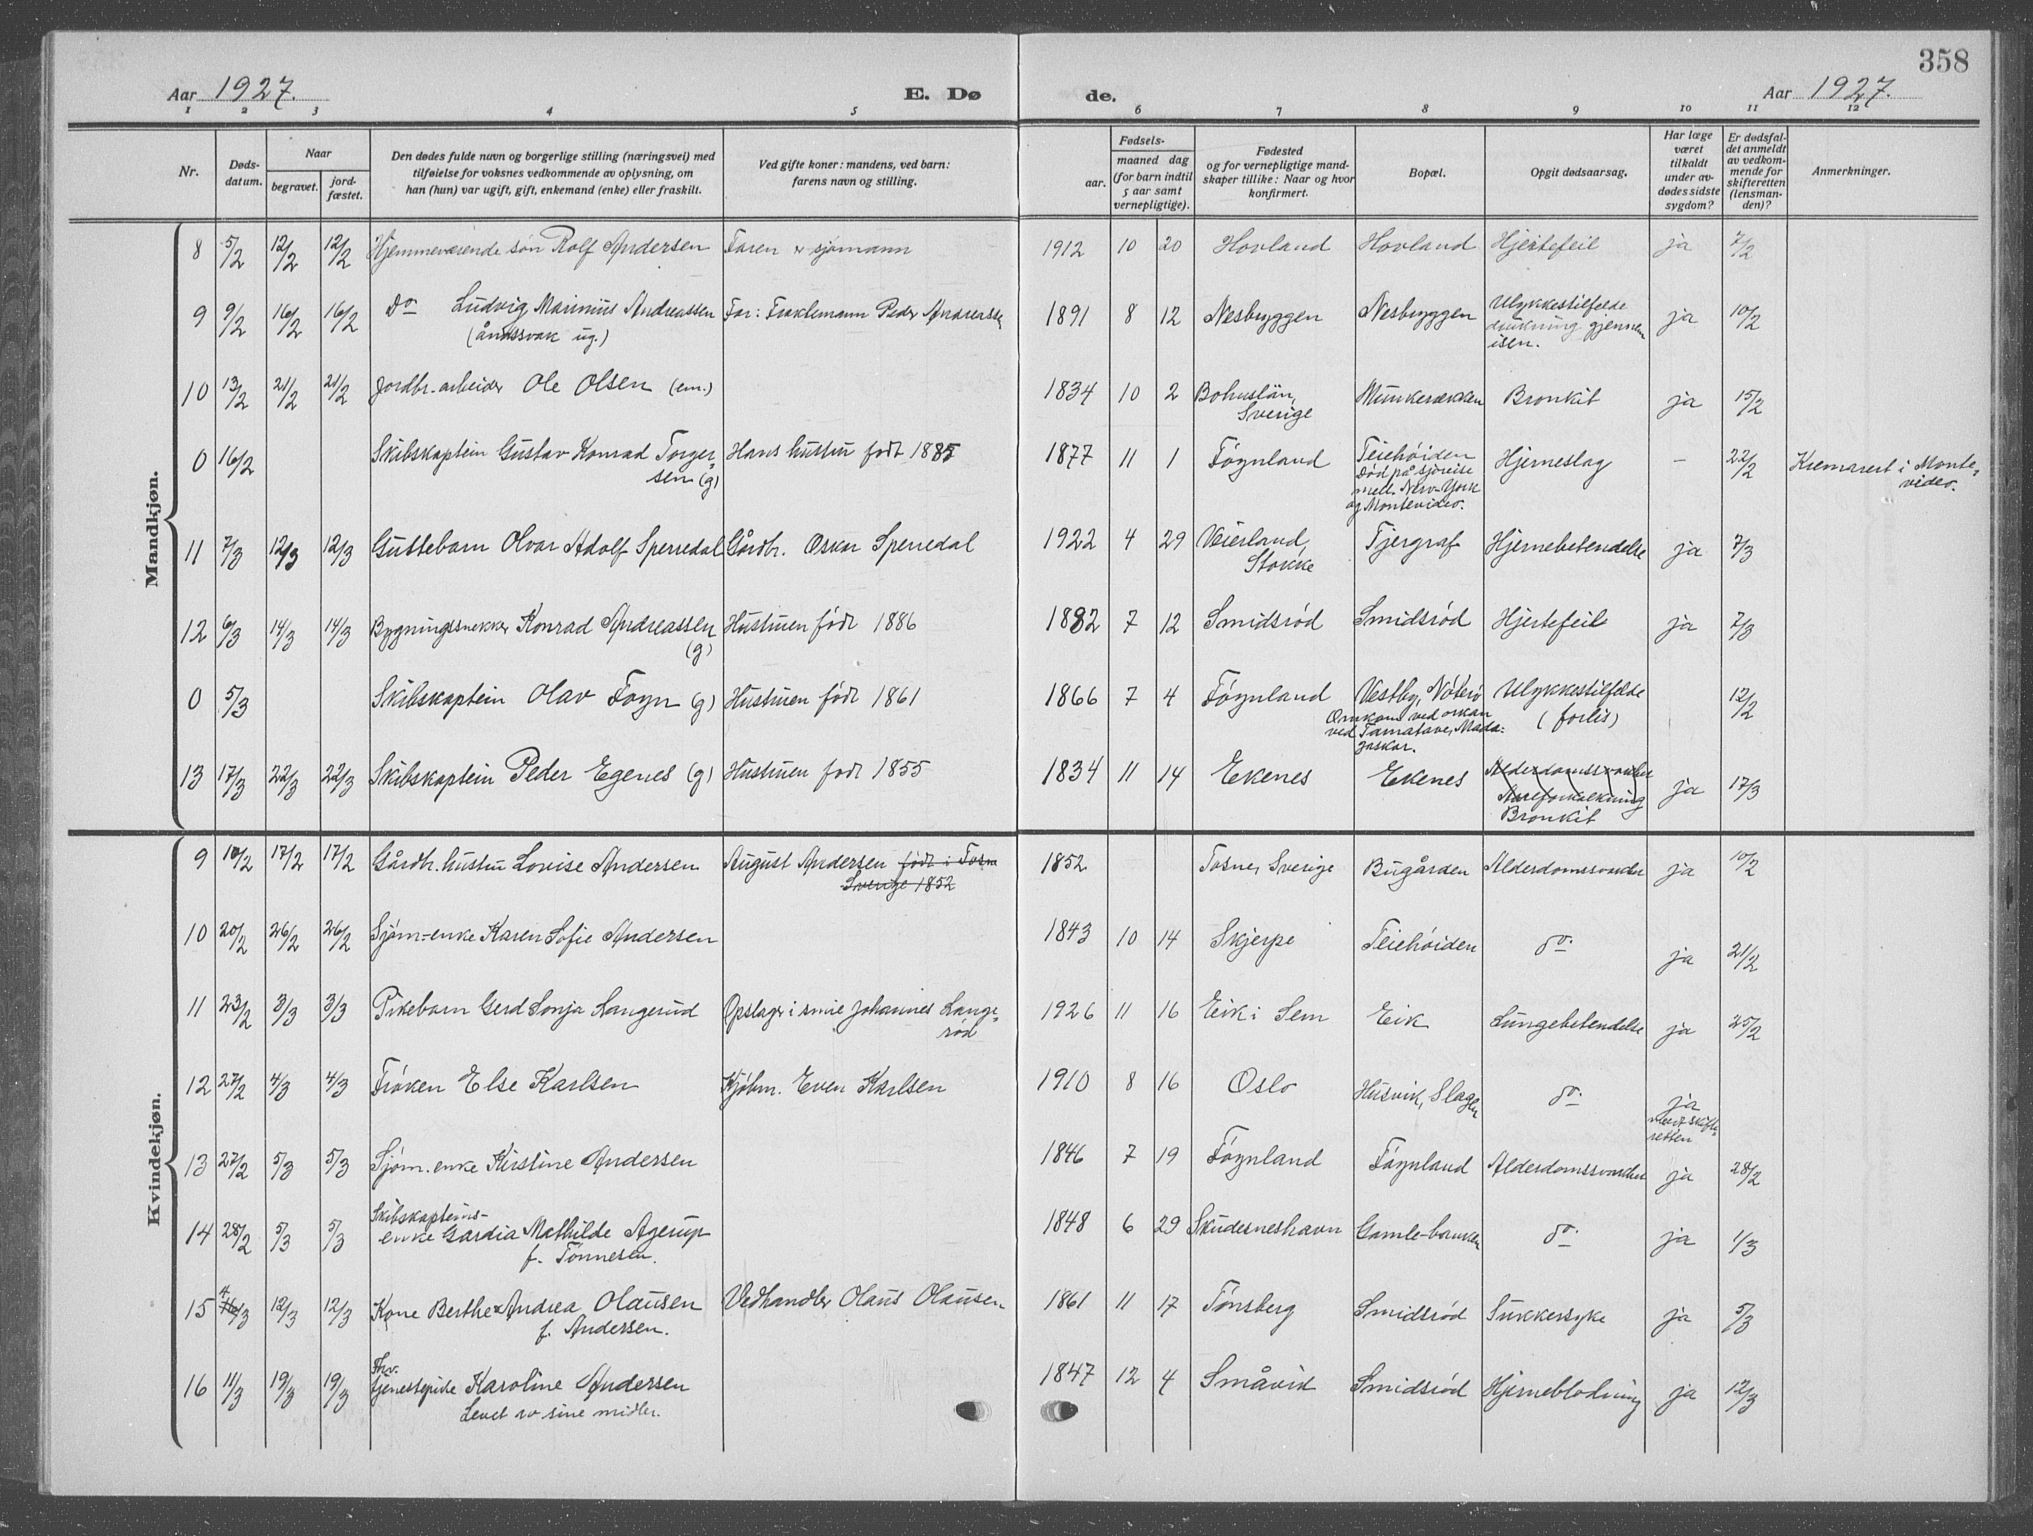 358
Aar 1927. E. Dø de. Aar 1927.
1 2 3 4 5 6 7 8 9 10 11 12
Nr.
Døds-
datum.
Naar
begravet.
jord-
fæstet.
Den dødes fulde navn og borgerlige stilling (næringsvei) med
tilføielse for voksnes vedkommende av oplysning, om
han (hun) var ugift, gift, enkemand (enke) eller fraskilt.
Ved gifte koner: mandens, ved barn:
farens navn og stilling.
Fødsels-
aar.
maaned dag
(for barn indtil
5 aar samt
vernepligtige).
Fødested
og for vernepligtige mand-
skaper tillike: Naar og hvor
konfirmert.
Bopæl.
Opgit dødsaarsag.
Har læge
været
tilkaldt
under av-
dødes sidste
sygdom?
Er dødsfal-
det anmeldt
av vedkom-
mende for
skifteretten
(lensman-
den)?
Anmerkninger.
Mandkjøn.
8 5/2 12/2 12/2 Hjemmeværende søn Rolf Andersen Faren er sjømann 1912 10 20 Hovland Hovland Hjertefeil ja 7/2
9 9/2 16/2 16/2 Do Ludvig Marinius Andreassen Far: Fraktemann Peder Andreassen 1891 8 12 Nesbryggen Nesbryggen Ulykkestilfelde ja 10/2
(åndssvak ug.) drukning gjennem
isen.
10 13/2 21/2 21/2 Jordbr. arbeider Ole Olsen (em.) 1834 10 2 Bohuslän, Munkerekken Bronkit ja 15/2
Sverige
0 16/2 Skibskaptein Gustav Konrad Torger- Hans hustru født 1885 1877 11 1 Føynland Teiehøiden Hjerneslag - 22/2 Kremarert i Monte-
sen (g) Død på sjøreise video.
mell. New-York
og Montevideo.
11 7/3 12/3 12/3 Guttebarn Olvar Adolf Sperredal Gårdbr. Oskar Sperredal 1922 4 29 Veierland, Tjergraf Hjernebetendelse ja 7/3
Stokke
12 6/3 14/3 14/3 Bygningssnekker Konrad Andreassen Hustruen født 1886 1882 7 12 Smidsrød Smidsrød Hjertefeil ja 7/3
(g)
0 5/3 Skibskaptein Olav Foyn (g) Hustruen født 1861 1866 7 4 Føynland Vestby, Nøterø Ulykkestilfelde 12/2
Omkom ved orkan (forlis)
ved Tamatave, Mada-
gaskar.
13 17/3 22/3 22/3 Skibskaptein Peder Egenes (g) Hustruen født 1855 1834 11 14 Ekenes Ekenes Alderdomssvækkelse ja 17/3
Aareforkalkning
Bronkit
Kvindekjøn.
9 10/2 17/2 17/2 Gårdbr. hustru Lovise Andersen August Andersen født i Tosne 1852 Tosne, Sverige Bugården Alderdomssvækkelse ja 10/2
Sverige 1852
10 20/2 26/2 26/2 Sjøm.-enke Karen Sofie Andersen 1843 10 14 Skjerpe Teiehøiden do. ja 21/2
11 23/2 3/3 3/3 Pikebarn Gerd Sonja Langerud Opslager i smie Johannes Lange- 1926 11 16 Eik i Sem Eik Lungebetendelse ja 25/2
rød
12 27/2 4/3 4/3 Frøken Else Karlsen Kjøbm. Even Karlsen 1910 8 16 Oslo Husvik, Slagen do. ja
retten
13 27/2 5/3 5/3 Sjøm. enke Kirstine Andersen 1846 7 19 Føynland Føynland Alderdomssvækkelse ja 28/2
14 28/2 5/3 5/3 Skibskapteins-
enke Gardia Mathilde Agerup 1848 6 29 Skudesneshavn Gamle-banken do. ja 1/3
f. Tønnesen.
15 4/3 12/3 12/3 Kone Berthe Andrea Olausen Vedhandler Olaus Olausen 1861 11 17 Tønsberg Smidsrød Sukkersyke ja 5/3
f. Andersen.
16 11/3 19/3 19/3 Fhv.
tjenestepike Karoline Andersen 1847 12 4 Småvik Smidsrød Hjerneblødning ja 12/3
Levet av sine midler.